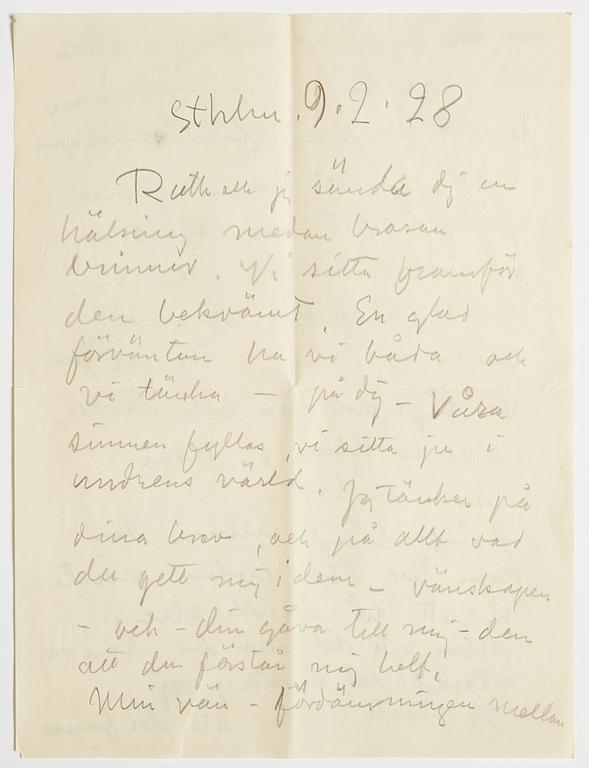 Sthlm. 9.2.28
Ruth och jag sända dig en
hälsning medan brasan
brinner. Vi sitta framför
den bekvämt. En glad
förväntan ha vi båda och
vi tänka – på dig – Våra
sinnen fyllas, vi sitta ju i
undrens värld. Jag tänker på
dina brev, och på allt vad
du gett mig i dem – vänskapen
– och – din gåva till mig – den
att du förstår mig helt.
Min vän – mellan